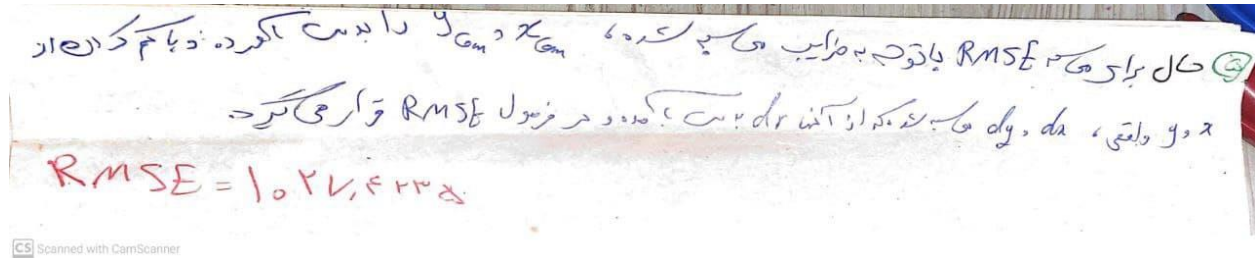 حال برای محاسبه RMSE باتوجه به ضرایب محاسبه شده، x com و y com را بدست آورده و با کم کردن از
x و y واقعی، dx و dy محاسبه شده که از آنها dr بدست آمده و در فرمول RMSE قرار می‌گیرد.
RMSE = ۱۰۲۷,۴۲۳۵
CS Scanned with CamScanner